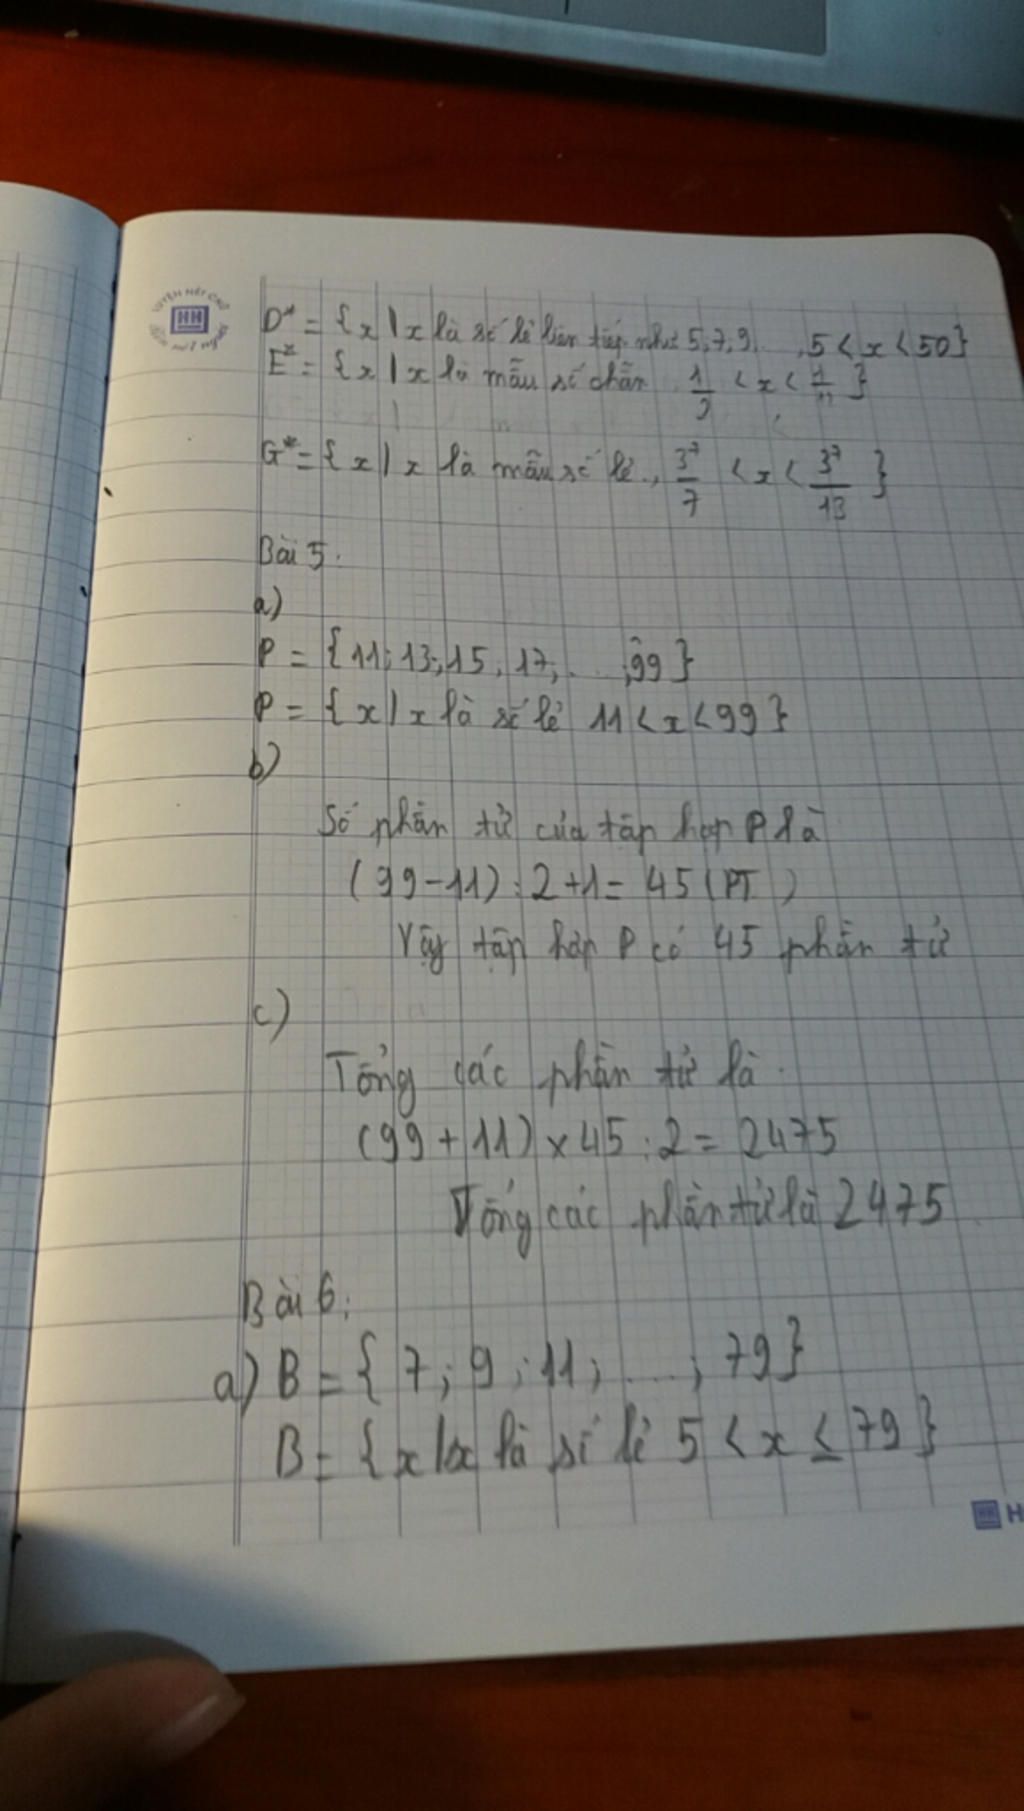 D* = {x | x là số lẻ liên tiếp như 5, 7, 9, ..., 5 < x < 50}
E* = {x | x là mẫu số chẵn 1/2 < x < 1/11}
G* = {x | x là mẫu số lẻ., 3⁷/7 < x < 3⁷/13 }
Bài 5.
a)
P = {11; 13; 15, 17, ... ;99}
P = {x | x là số lẻ 11 < x < 99}
b)
Số phần tử của tập hợp P là
(99-11) : 2 + 1 = 45 (PT)
Vậy tập hợp P có 45 phần tử
c)
Tổng các phần tử là
(99 + 11) x 45 : 2 = 2475
Tổng các phần tử là 2475
Bài 6:
a) B = { 7; 9; 11; ...; 79}
B = {x | x là số lẻ 5 < x ≤ 79}
HH